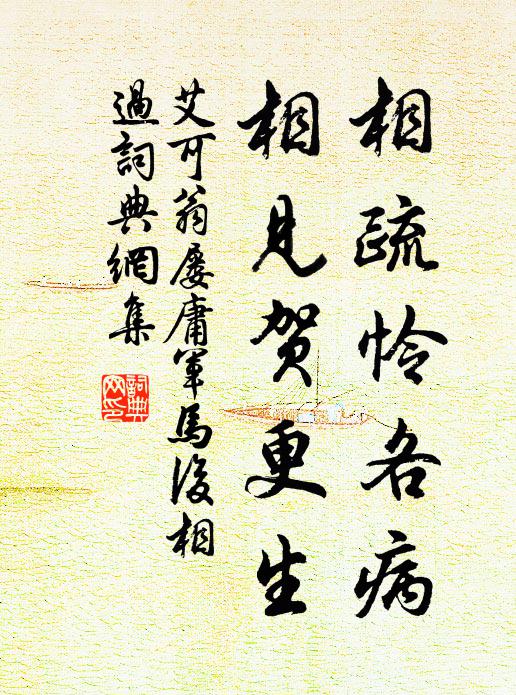 相疏怜各病
相見贺更生
艾可翁屡庸軍馬後相
過詞典網集
詞典
网印